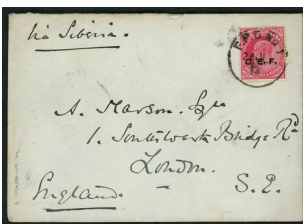 Via Siberia.
F.P.O. No 7
C.E.F.
A. Marson. Esqre
1. Southwark Bridge Rd
London.
England. S.E.